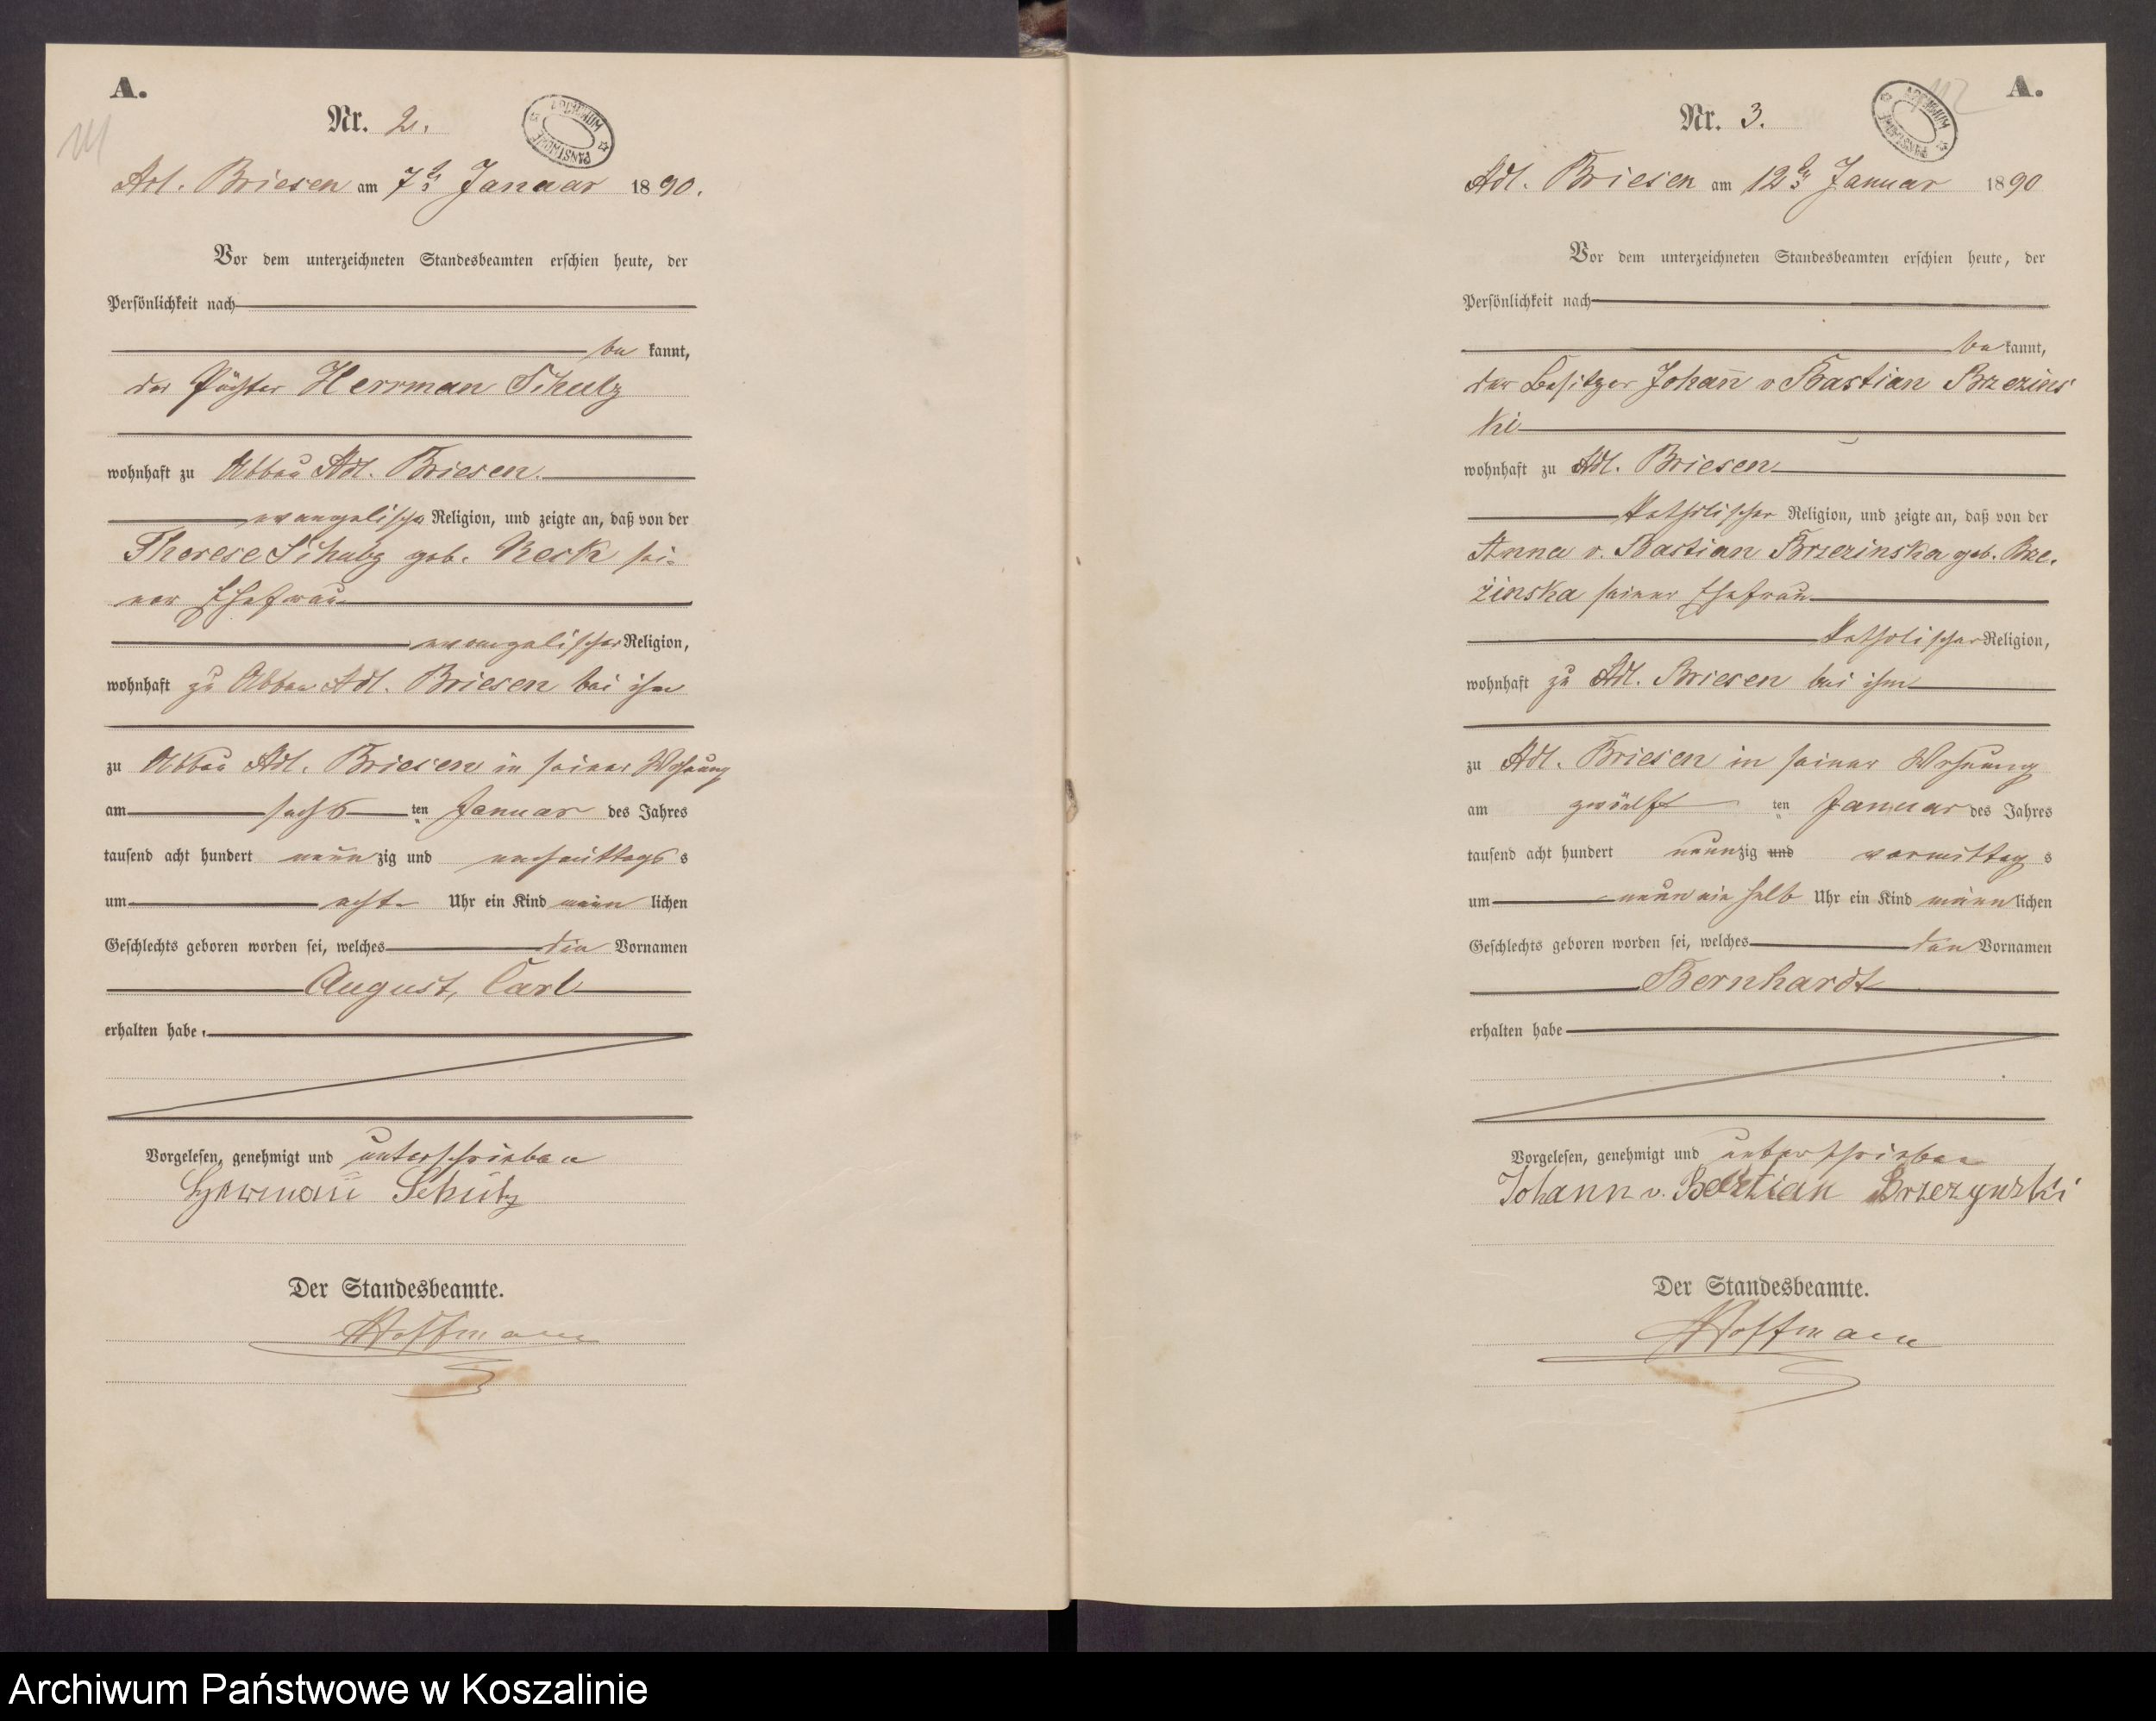 A.
111
Nr. 2.
ARCHIWUM PAŃSTWOWE
Adl. Briesen am 7ten Januar 1890.
Vor dem unterzeichneten Standesbeamten erschien heute, der
Persönlichkeit nach
be kannt,
der Pächter Herrman Schulz
wohnhaft zu Abbau Adl. Briesen.
evangelischer Religion, und zeigte an, daß von der
Therese Schulz geb. Reck sei-
ner Ehefrau
evangelischer Religion,
wohnhaft zu Abbau Adl. Briesen bei ihm
zu Abbau Adl. Briesen in seiner Wohnung
am sechs ten Januar des Jahres
tausend acht hundert neun zig und nachmittags s
um acht Uhr ein Kind männ lichen
Geschlechts geboren worden sei, welches die Vornamen
August, Carl
erhalten habe.
Vorgelesen, genehmigt und unterschrieben
Hermann Schulz
Der Standesbeamte.
Hoffmann
A.
112
Nr. 3.
ARCHIWUM PAŃSTWOWE
Adl. Briesen am 12ten Januar 1890
Vor dem unterzeichneten Standesbeamten erschien heute, der
Persönlichkeit nach
be kannt,
der Besitzer Johann v Bastian Brzezins
ki
wohnhaft zu Adl. Briesen
katholischer Religion, und zeigte an, daß von der
Anna v. Bastian Brzezinska geb. Brze.
zinska seiner Ehefrau
katholischer Religion,
wohnhaft zu Adl. Briesen bei ihm
zu Adl. Briesen in seiner Wohnung
am zwölf ten Januar des Jahres
tausend acht hundert neunzig und vormittag s
um neun ein halb Uhr ein Kind männ lichen
Geschlechts geboren worden sei, welches den Vornamen
Bernhardt
erhalten habe
Vorgelesen, genehmigt und unterschrieben
Johann v. Bastian Brzezynski
Der Standesbeamte.
Hoffmann
Archiwum Państwowe w Koszalinie